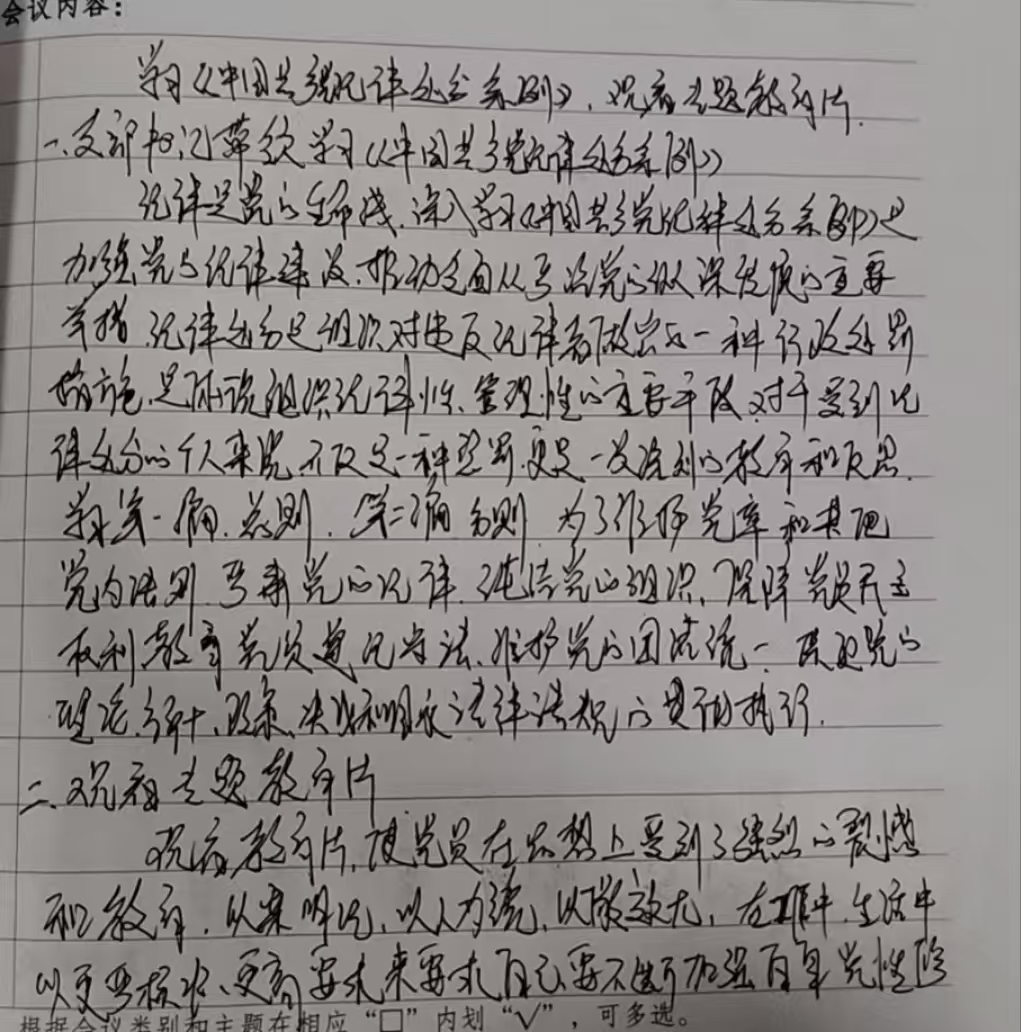 会议内容：
学习《中国共产党纪律处分条例》、观看专题教育片.
一、支部书记带领学习《中国共产党纪律处分条例》
纪律是党的生命线.深入学习《中国共产党纪律处分条例》是
加强党的纪律建设、推动全面从严治党向纵深发展的重要
举措.纪律处分是组织对违反纪律者做出的一种行政处罚
措施.是体现组织纪律性、管理性的重要手段.对于受到纪
律处分的个人来说.不仅是一种惩罚.更是一次深刻的教育和反思.
学习第一编.总则.第二编分则.为了维护党章和其他
党内法则.严肃党的纪律.纯洁党的组织、保障党员民主
权利教育党员遵纪守法、维护党的团结统一.
理论.方针、政策、决议和国家法律法规的贯彻执行.
二.观看专题教育片
观看教育片.使党员在思想上受到了强烈的震撼
和教育.以案明纪、以人为镜、以儆效尤，在工作中.生活中
以更严标准、更高要求来要求自己要不断加强自身党性修
根据会议类别和主题在相应“□”内划“√”，可多选。